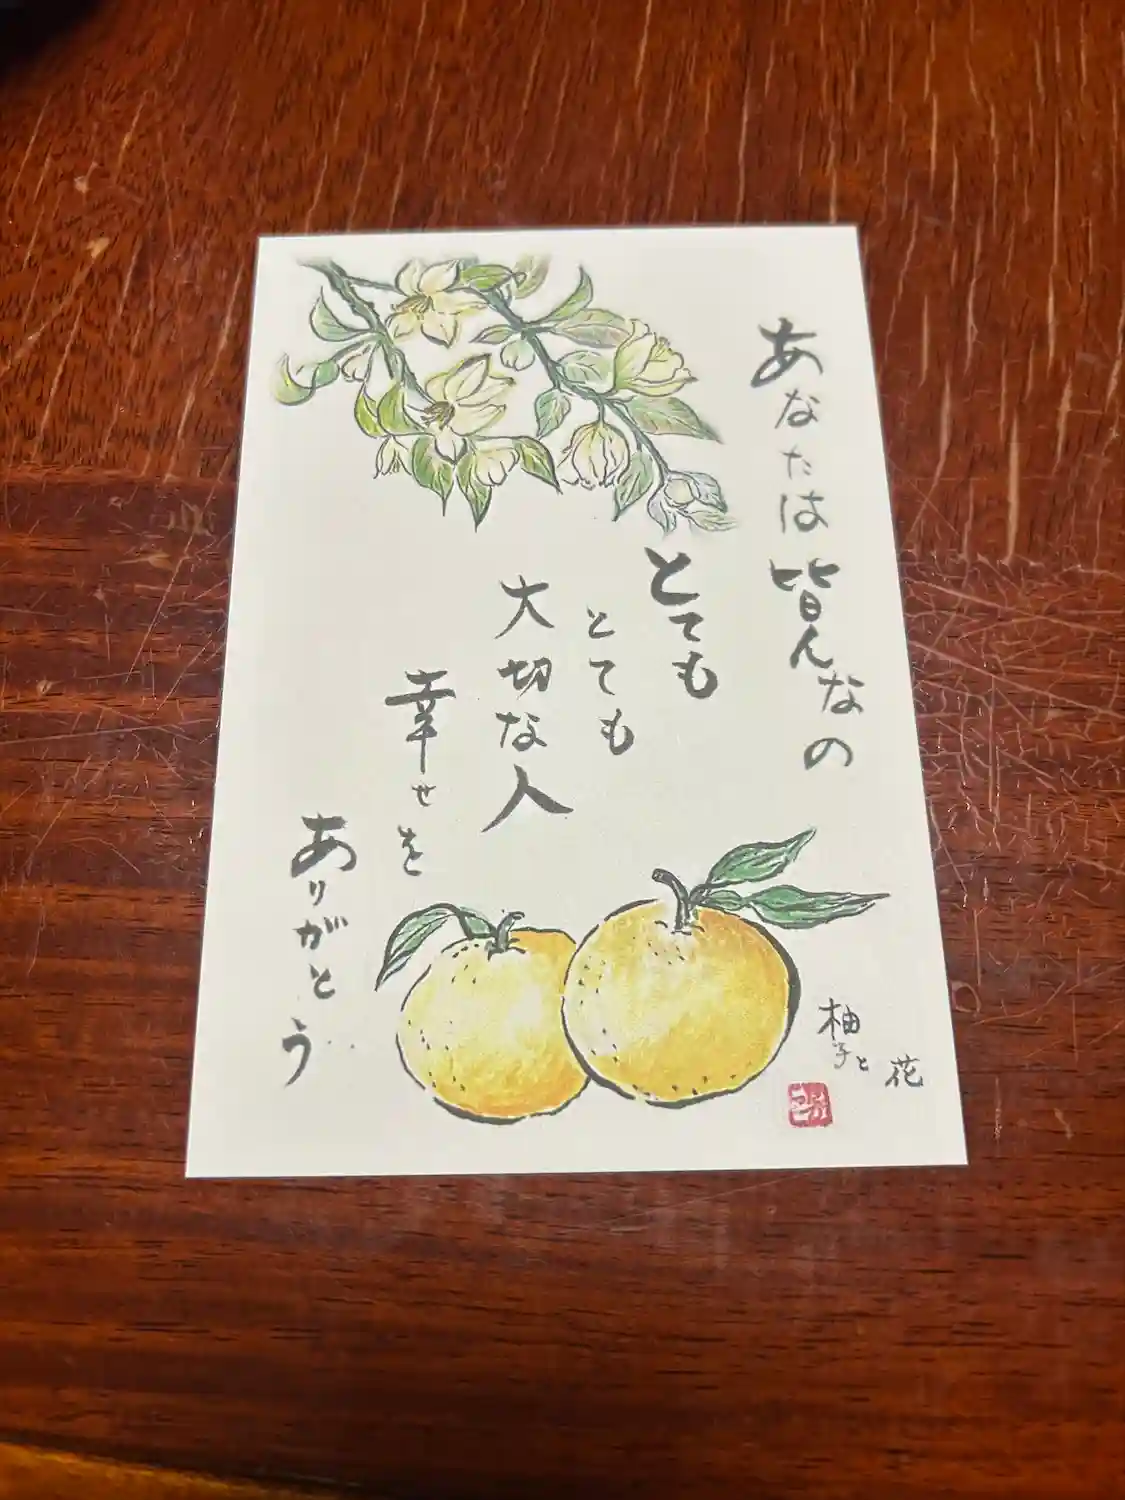 あなたは皆んなの
とても
とても
大切な人
幸せを
ありがとう
柚子と花